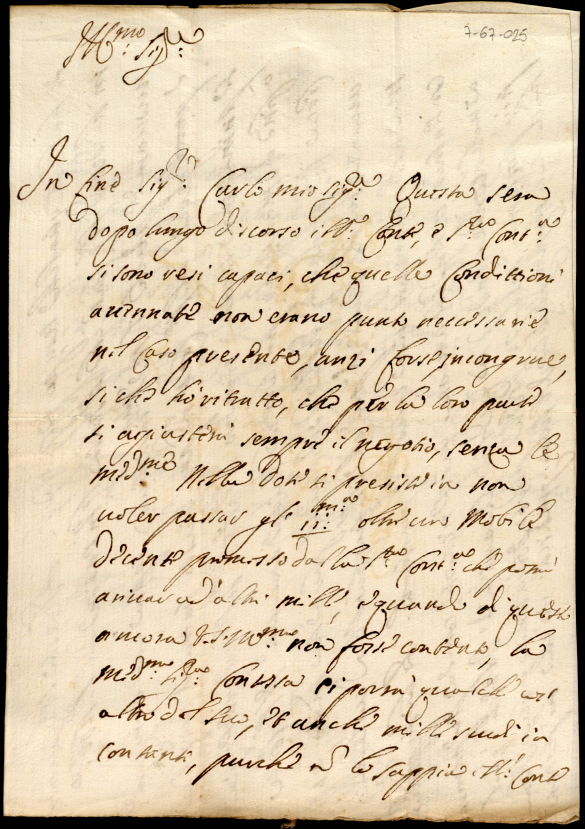 7-67-025
Ill:mo Sig:re
In fine Sig:r Carlo mio sig:re Questa sera
dopo lungo discorso il S:r Conte, e S:ra Cont:a
si sono resi capaci, che quelle Condittioni
accennate non erano punto necessarie
nel caso presente, anzi forse incongrue,
si che hò ritratto, che per la loro parte
si agiusterà sempre il negotio, senza le
med:me Nella dote si presiste in non
voler passar gli 11:m oltre un Mobile
decente promesso dalla S:ra Cont:a che potrà
arrivar ad altri mille, e quando di questo
ancora V.S. Ill:ma non fosse contenta, la
med:ma Sig:ra Contessa ci porrà qualche
altro del suo, et anche mille scudi in
contanti, purche nõ lo sappia il S:r Conte